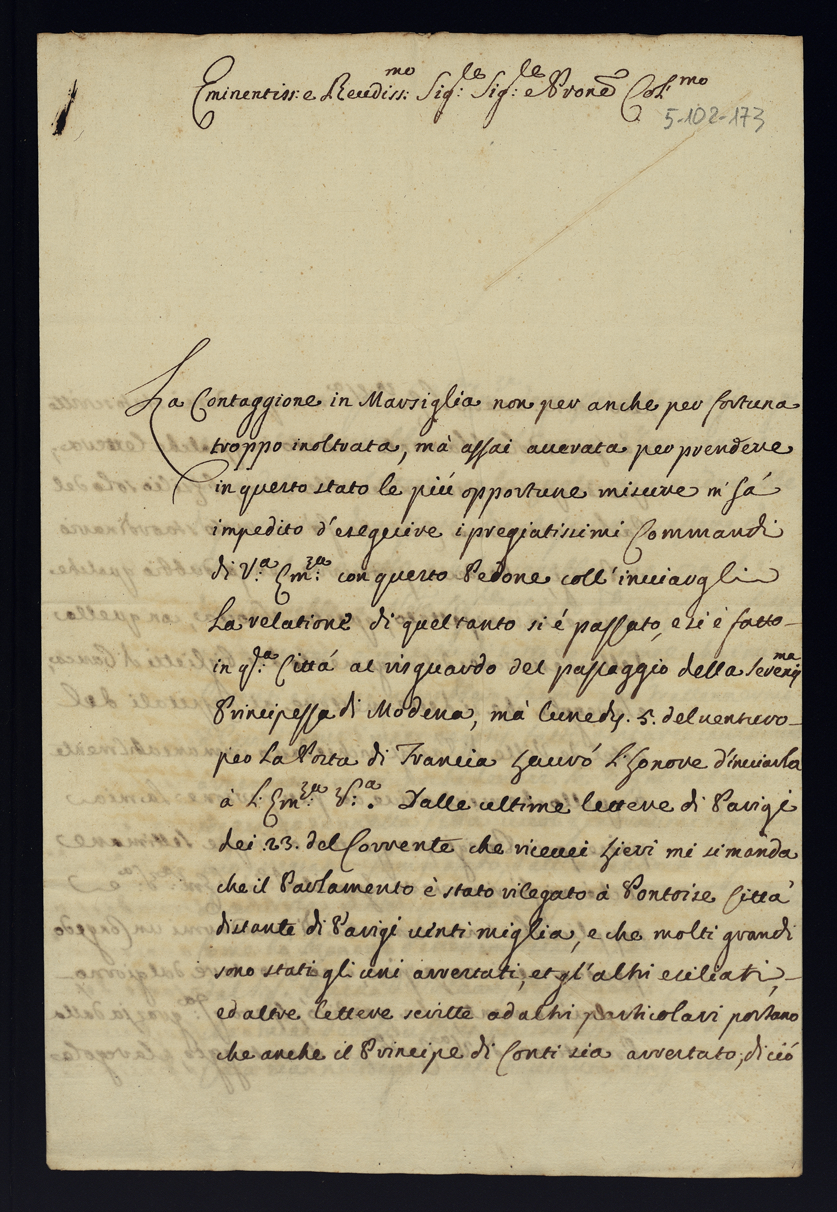 Eminentiss: e Reudiss:mo Sig:le Sig:le e Prone Col:mo
5-102-173
La Contaggione in Marsiglia non per anche per fortuna
troppo inoltrata, mà assai auerata per prendere
in questo stato le più opportune misure m'hà
impedito d'eseguire i pregiatissimi Commandi
di V:a Em:za con questo Pedone coll'inuiargli
La relatione di quel tanto si é passato, e si é fatto
in qsta Città al risguardo del passaggio della Serenma
Principessa di Modena, mà lunedy. 5. del venturo
per La Posta di Francia haurò L'honore d'inuiarla
à L'Em:za V:a. Dalle ultime lettere di Parigi
dei .23. del Corrente che riceuei hieri mi si manda
che il Parlamento è stato rilegato à Pontoise Città
distante di Parigi uinti miglia, e che molti grandi
sono stati gli uni arrestati, et gl'altri esiliati,
ed altre lettere scritte ad altri particolari portano
che anche il Principe di Conti sia arrestato, di ció